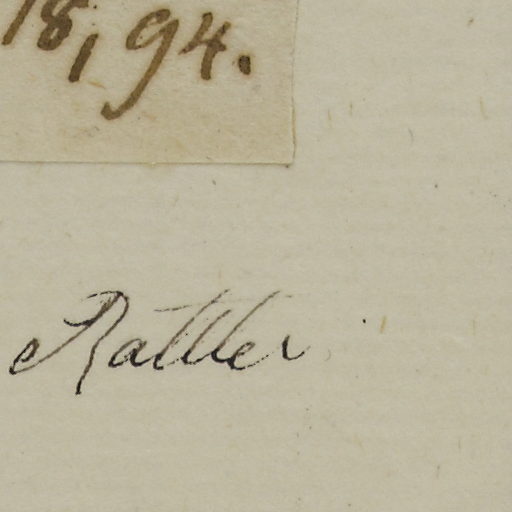 18, 94.
Rattler